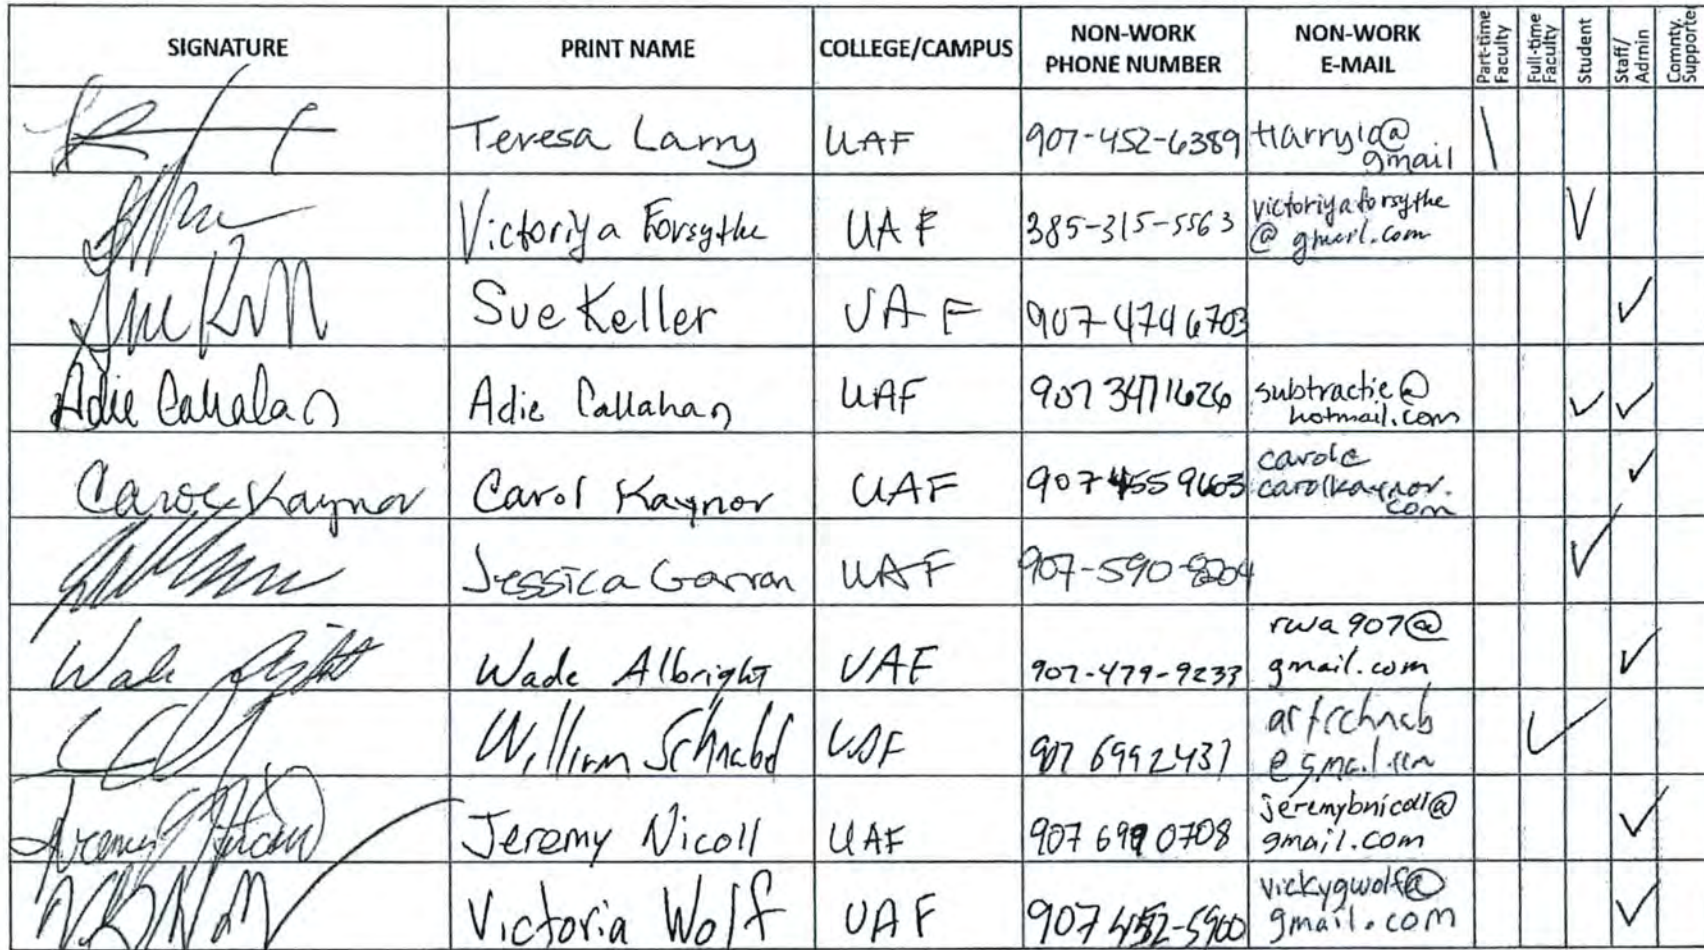 SIGNATURE PRINT NAME COLLEGE/CAMPUS NON-WORK PHONE NUMBER NON-WORK E-MAIL Part-time Faculty Full-time Faculty Student Staff/Admin Commty. Supporter
Teresa Larry UAF 907-452-6389 @
gmail
Victoriya Forsythe UAF 385-315-5563 victoriyaforsythe
@gmail.com
Sue Keller UAF 907-474 6703
Adie Callahan Adie Callahan UAF 907 347 1626 subtractie@
hotmail.com
Carol Kaynor Carol Kaynor UAF 907 455 9663 carol@
carolkaynor.
com
Jessica Garron UAF 907-590-8204
Wade Albright UAF 907-479-9233 rwa907@
gmail.com
William Schnabel UAF 907 699 2437
@gmail.com
Jeremy Nicoll UAF 907 699 0708 jeremybnicoll@
gmail.com
Victoria Wolf UAF 907 452-5900 vickygwolf@
gmail.com